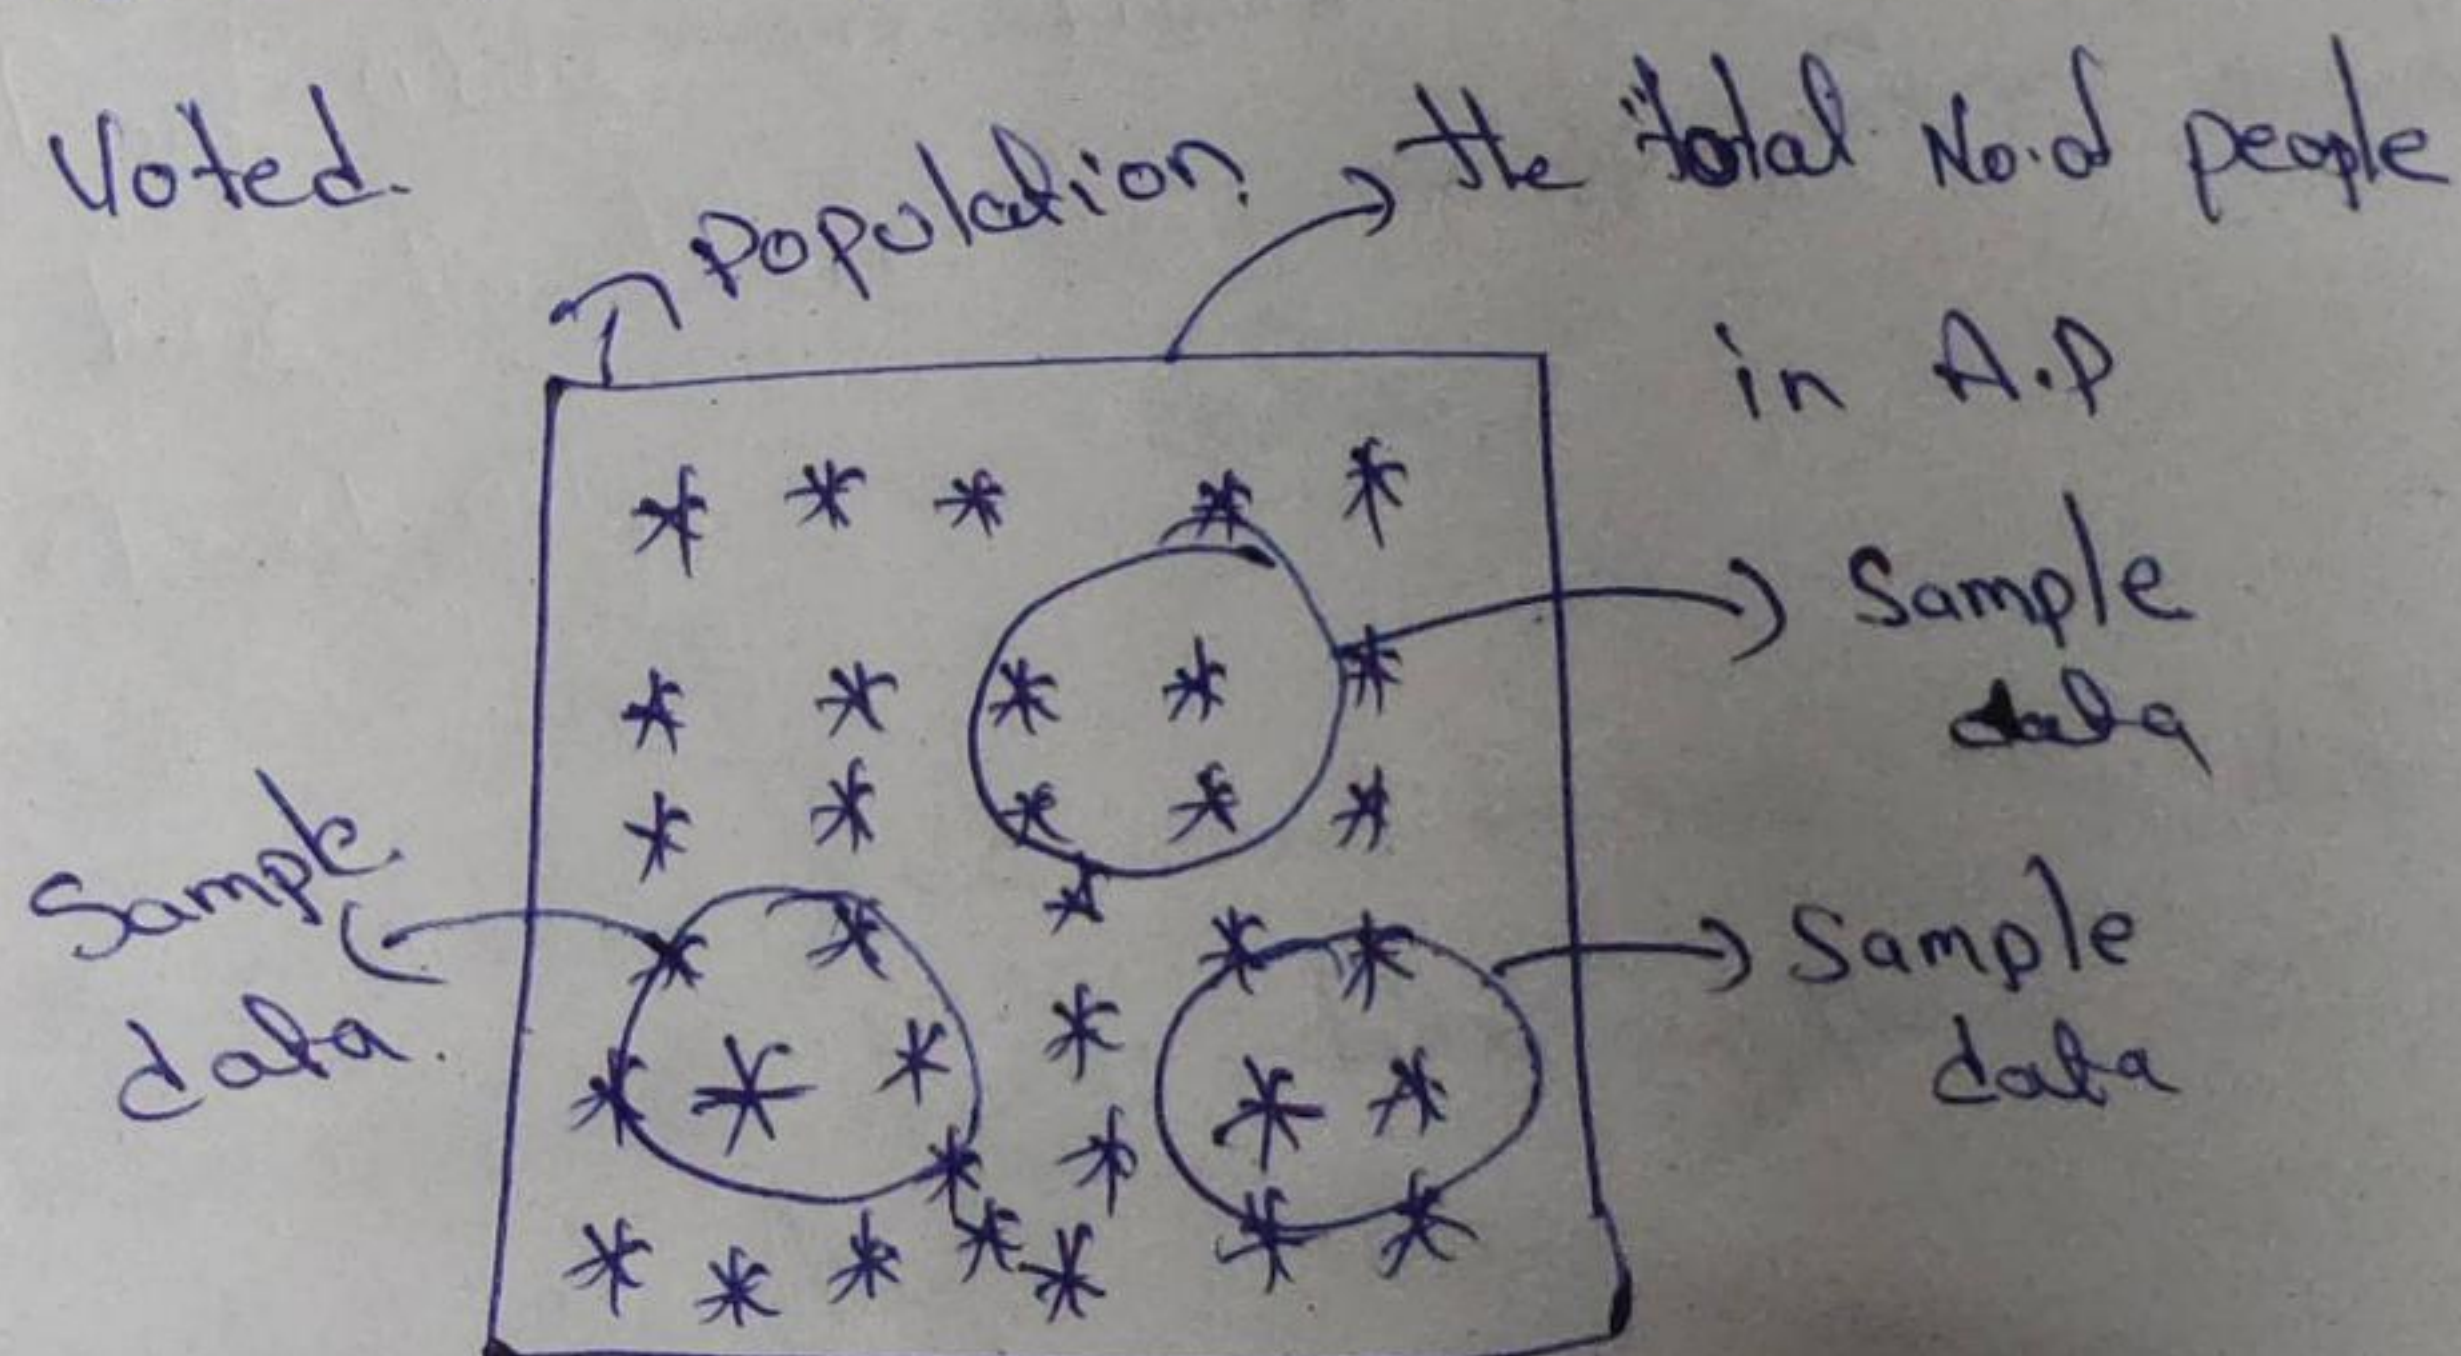 Voted.
Population.
the total No.of people
in A.P
Sample
data
Sample
data.
Sample
data